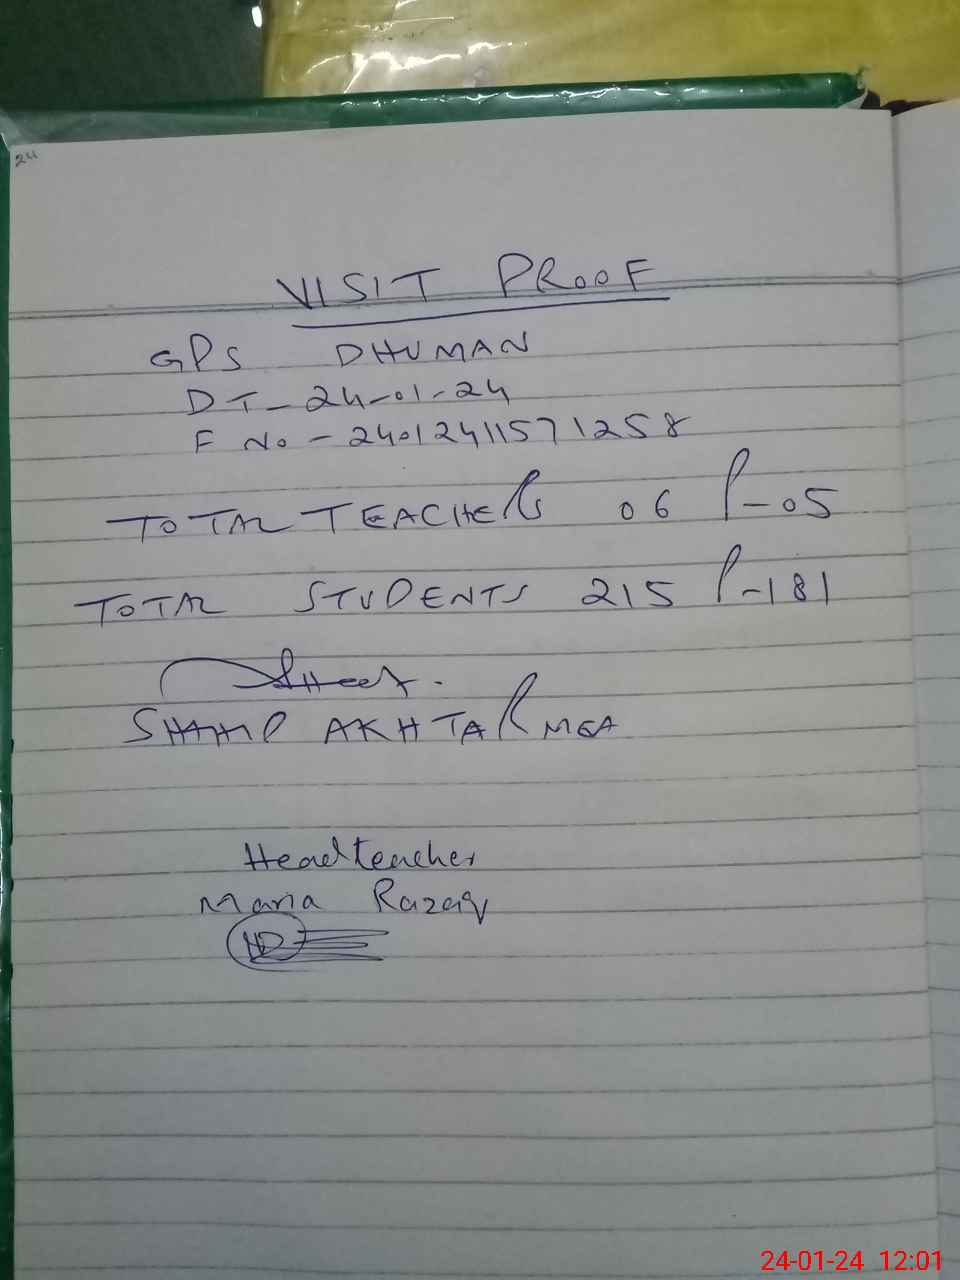 24
VISIT PROOF
GPS DHUMAN
DT_ 24-01-24
F No - 24012411571258
TOTAL TEACHERS 06 P-05
TOTAL STUDENTS 215 P-181
AKHTAR MEA
Headteacher
Maria Razaq
24-01-24 12:01